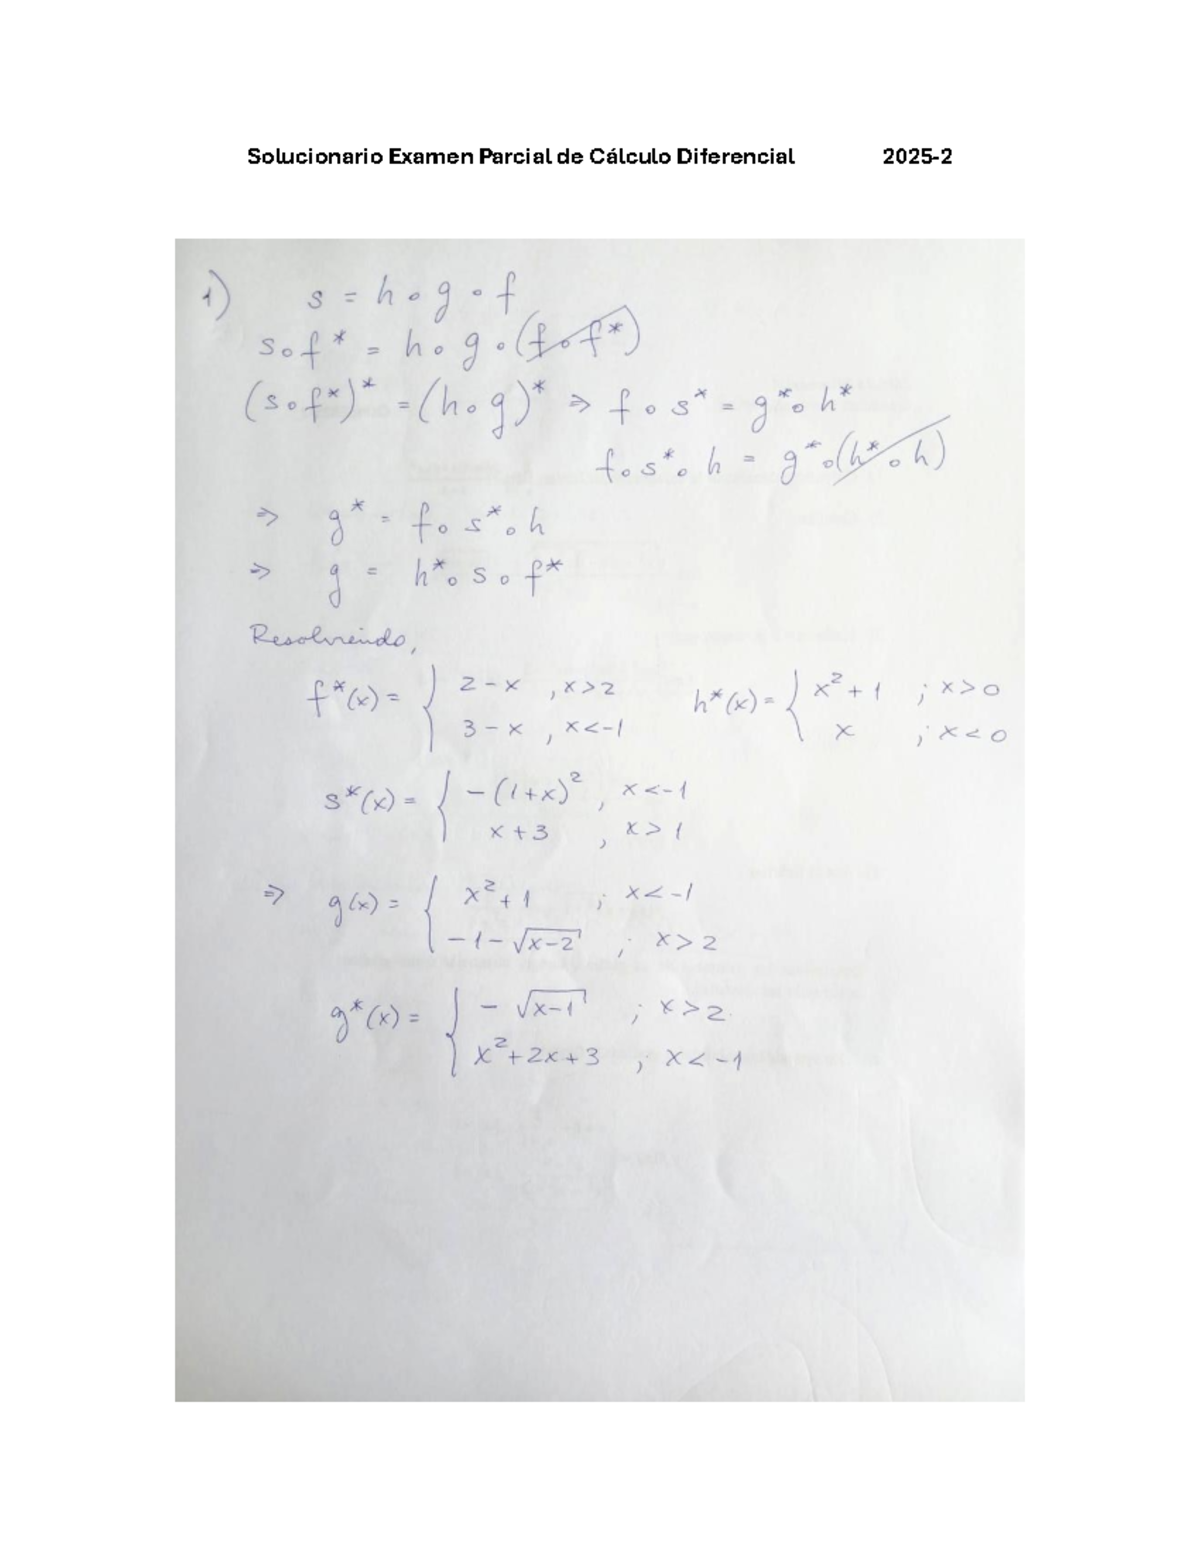 Solucionario Examen Parcial de Cálculo Diferencial 2025-2
1) s = h ∘ g ∘ f
s∘f* = h∘ g ∘(f∘f*)
(s∘f*)* = (h∘g)* ⇒ f ∘ s* = g*∘ h*
f∘s*∘ h = g*∘(h*∘h)
⇒ g* = f∘ s*∘h
⇒ g = h*∘ s ∘ f*
Resolviendo,
f*(x) = { 2 - x , x>2 h*(x) = { x² + 1 ; x>0
3 - x , x<-1 x ; x<0
s*(x) = { -(1+x)² , x<-1
x+3 , x>1
⇒ g(x) = { x²+1 ; x<-1
-1-√x-2 ; x>2
g*(x) = { - √x-1 ; x>2
x²+2x+3 ; x<-1